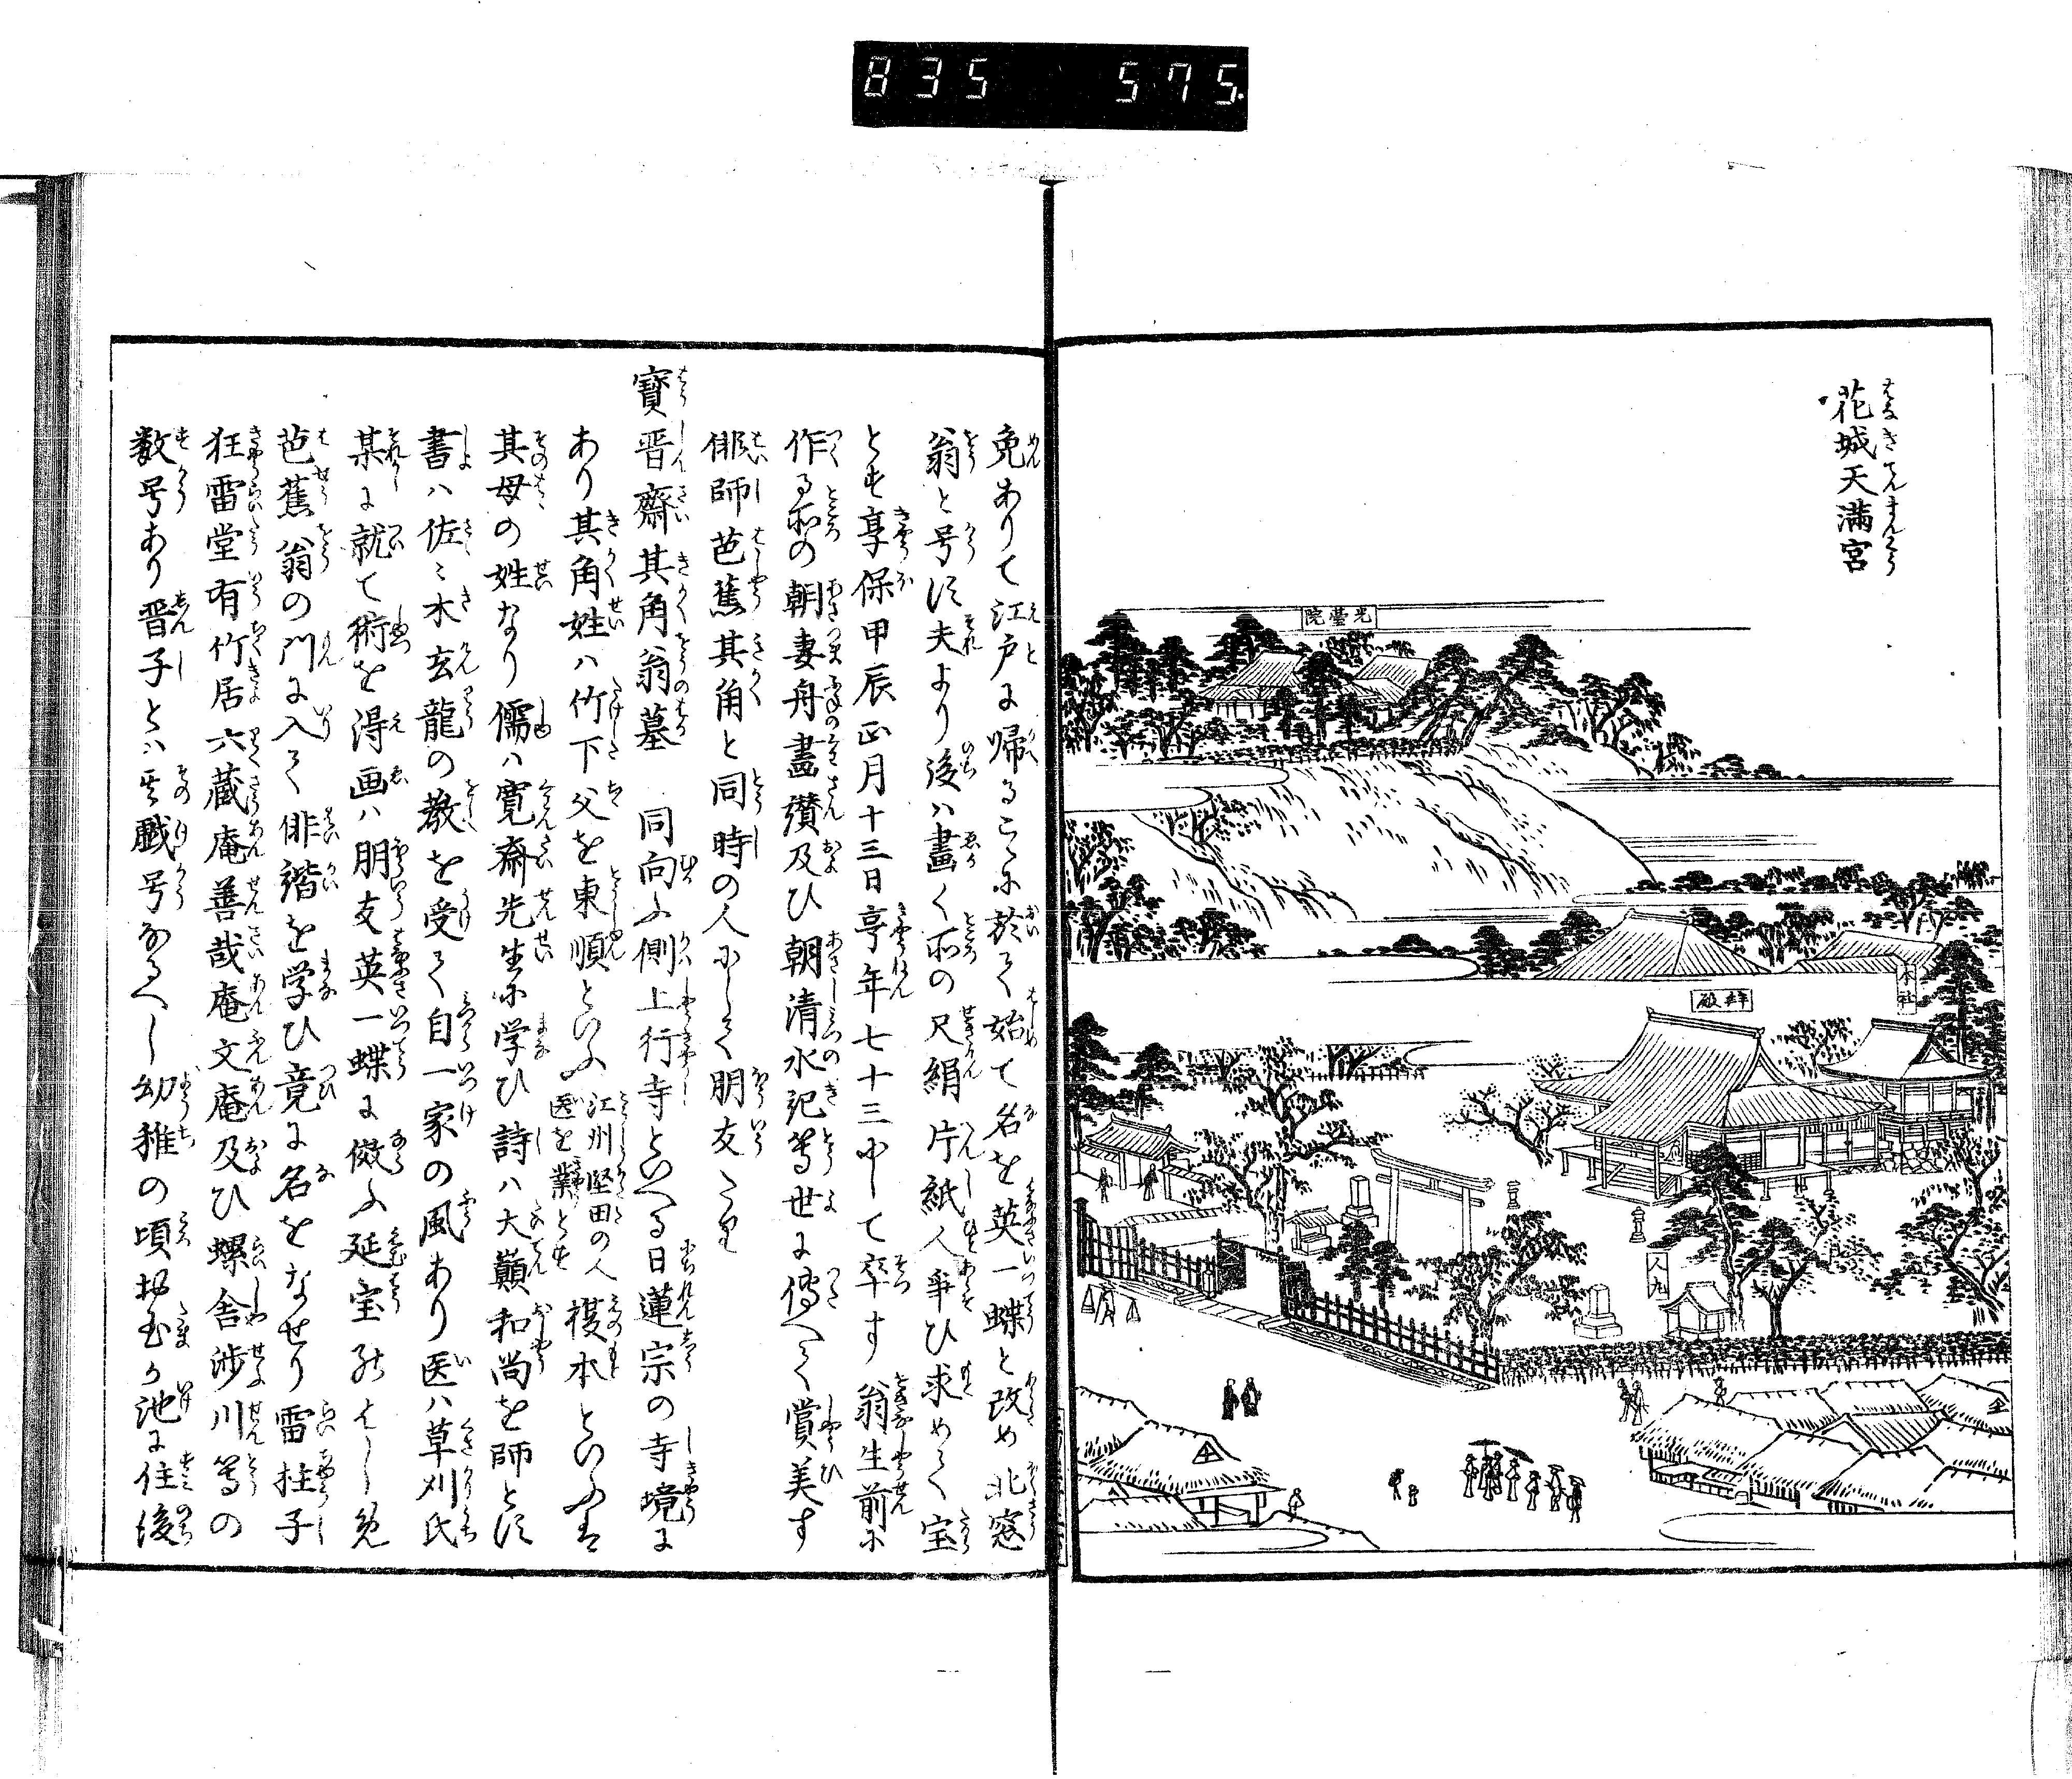 835 575
花城天満宮
光臺院
本社
拝殿
人丸
免ありて江戸に帰るこゝに於て始て名を英一蝶と改め北窓
翁と号す夫より後ハ畫く所の尺絹片紙人争ひ求めて宝
とす享保甲辰正月十三日享年七十三にして卒す翁生前に
作る所の朝妻舟畫讃及ひ朝清水記等世に傳へて賞美す
俳師芭蕉其角と同時の人にして朋友たり
寳晋齋其角翁墓 同向ふ側上行寺といへる日蓮宗の寺境に
あり其角姓ハ竹下父を東順といふ江州堅田の人医を業とす榎本といふは
其母の姓なり儒ハ寛齋先生に学ひ詩ハ大巓和尚を師とす
書ハ佐々木玄龍の教を受て自一家の風あり医ハ草刈氏
某に就て術を得画ハ朋友英一蝶に倣ふ延宝のはしめ
芭蕉翁の門に入て俳諧を学ひ竟に名をなせり雷柱子
狂雷堂有竹居六蔵庵善哉庵文庵及ひ螺舎渉川等の
数号あり晋子とハ其戯号なるへし幼稚の頃お玉か池に住後